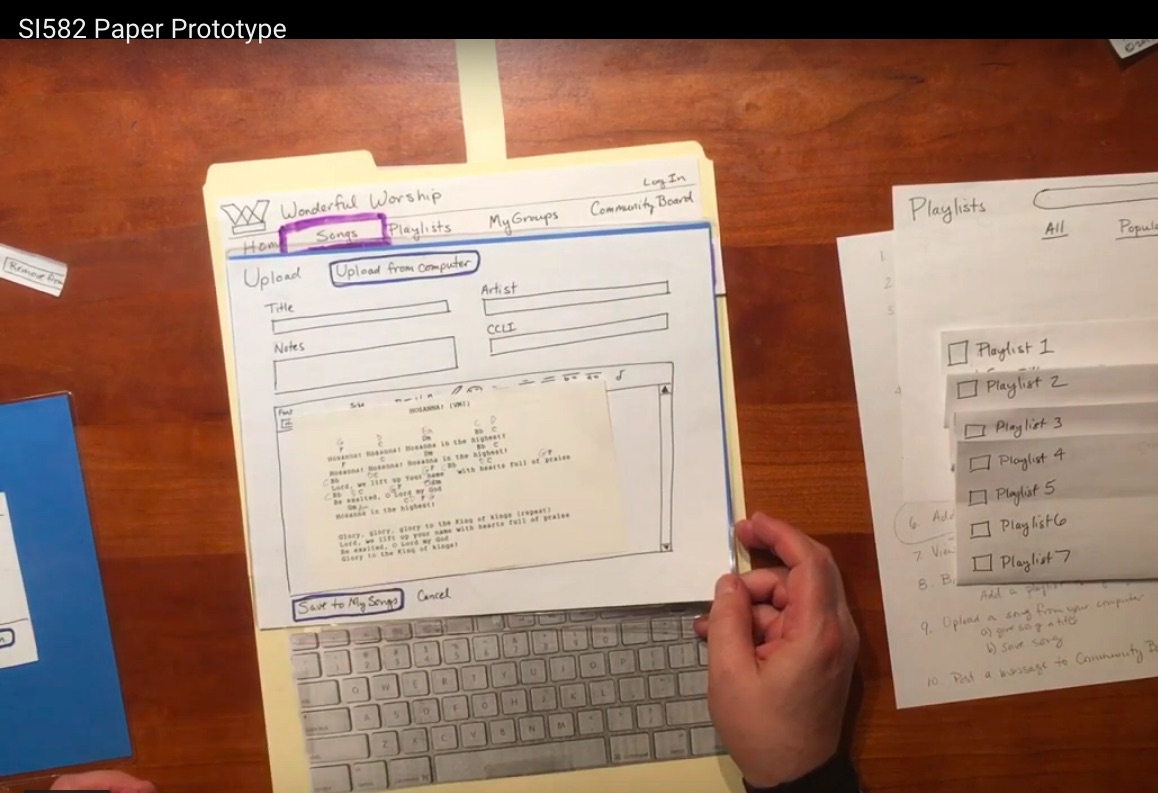 SI582 Paper Prototype
Wonderful Worship
Log In
Home
Songs
Playlists
My Groups
Community Board
Upload
Upload from computer
Title
Artist
Notes
CCLI
Font
Size
HOSANNA! (VM!)
G D Em C D
F C Dm Bb C
Hosanna! Hosanna! Hosanna in the highest!
F C Dm Bb C
Hosanna! Hosanna! Hosanna in the highest!
Lord, we lift up Your name with hearts full of praise
Be exalted, O Lord my God
Hosanna in the highest!
Glory, glory, glory to the King of kings (repeat)
Lord, we lift up your name with hearts full of praise
Be exalted, O Lord my God
Glory to the King of kings!
Save to My Songs
Cancel
Remove from
Playlists
All
Popula
Playlist 1
Playlist 2
Playlist 3
Playlist 4
Playlist 5
Playlist 6
Playlist 7
6. Add
7. View
8.
Add a playlist
9. Upload a song from your computer
a) give song a title
b) save song
10. Post a message to Community Bo